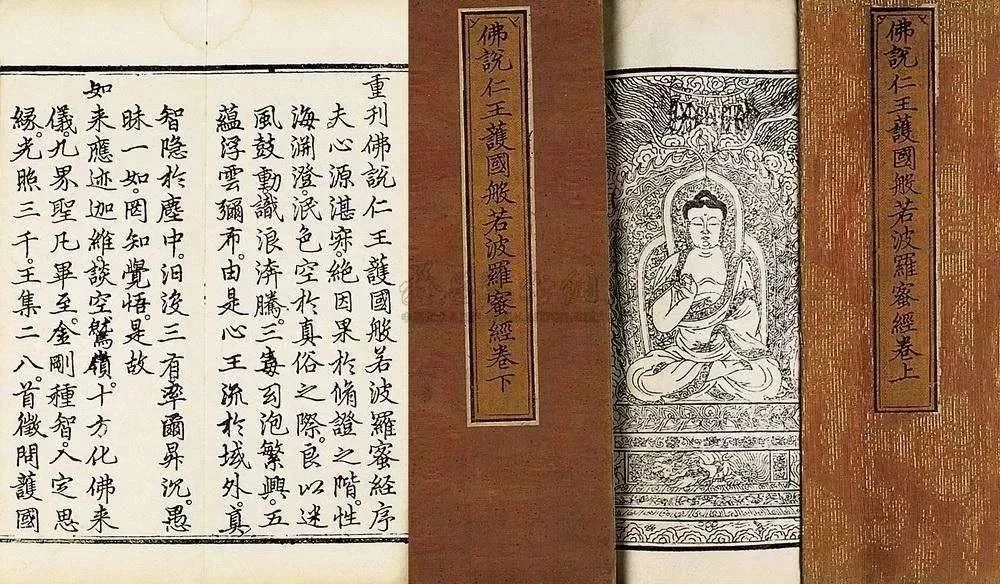 佛說仁王護國般若波羅蜜經卷上
佛說仁王護國般若波羅蜜經卷下
重刊佛說仁王護國般若波羅蜜經序
夫心源湛寂。絕因果於脩證之階。性
海淵澄。泯色空於真俗之際。良以迷
風鼓動。識浪渀騰。三毒幻泡繁興。五
蘊浮雲彌布。由是心王流於域外。真
智隐於塵中。汨没三有。率爾昇沉。愚
昧一如。罔知覺悟。是故
如来應迹迦維。談空鷲嶺。十方化佛来
儀。九界聖凡畢至。金剛種智。入定思
緣。光照三千。王集二八。首徵問護國